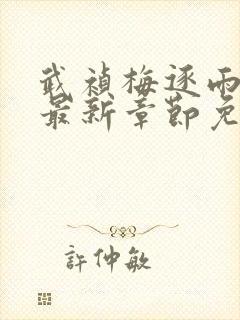 武禎梅逐雨
最新章節免
許仲敏